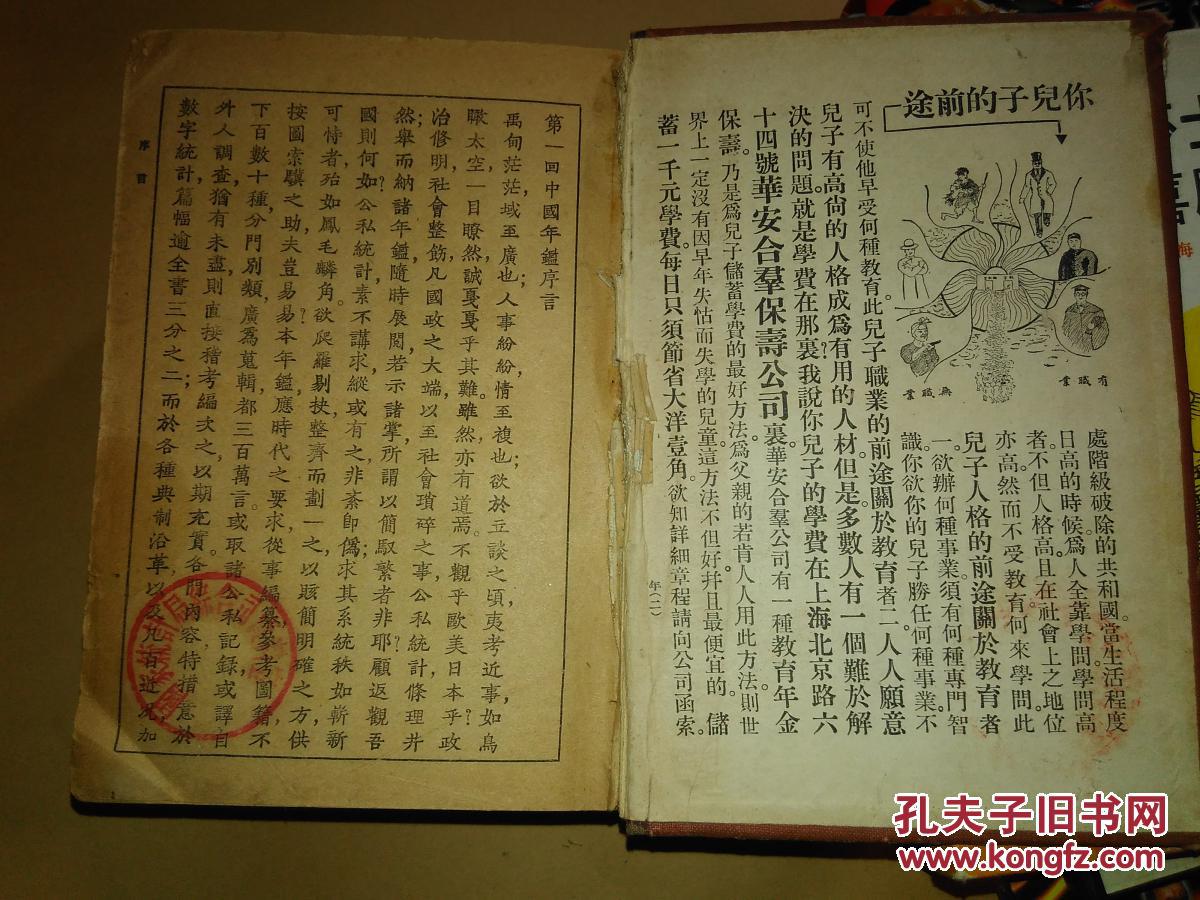 你兒子的前途
有職業
無職業
處階級破除的共和國。當生活程度
日高的時候。爲人全靠學問。學問高
者。不但人格高。且在社會上之地位
亦高。然而不受教育。何來學問。此
兒子人格的前途關於教育者
一。欲辦何種事業。須有何種專門智
識。你欲你的兒子勝任何種事業。不
可不使他早受何種教育。此兒子職業的前途關於教育者二。人人願意
兒子有高尚的人格成爲有用的人材。但是多數人有一個難於解
決的問題。就是學費在那裏？我說你兒子的學費在上海北京路六
十四號華安合羣保壽公司裏。華安合羣公司有一種教育年金
保壽。乃是爲兒子儲蓄學費的最好方法。爲父親的若肯人人用此方法。則世
界上一定沒有因早年失怙而失學的兒童。這方法不但好。幷且最便宜的。儲
蓄一千元學費。每日只須節省大洋壹角。欲知詳細章程請向公司函索。
年(二)
第一回中國年鑑序言
禹甸茫茫，域至廣也；人事紛紛，情至複也；欲於立談之頃，夷考近事，如鳥
瞰太空，一目瞭然，誠戛戛乎其難。雖然，亦有道焉。不觀乎歐美日本乎？政
治修明，社會整飭，凡國政之大端，以至社會瑣碎之事，公私統計，條理井
然；舉而納諸年鑑，隨時展閱，若示諸掌，所謂以簡馭繁者非耶？顧返觀吾
國則何如？公私統計，素不講求，縱或有之，非紊即僞；求其系統秩如，嶄新
可恃者，殆如鳳毛麟角。欲爬羅剔抉，整齊而劃一之，以賅簡明確之方，供
按圖索驥之助，夫豈易易？本年鑑應時代之要求，從事編纂，參考圖籍，不
下百數十種，分門別類，廣爲蒐輯，都三百萬言。或取諸公私記錄，或譯自
外人調查，猶有未盡，則直接稽考，編次之，以期充實，各門內容，特措意於
數字統計，篇幅逾全書三分之二；而於各種典制沿革，以及凡百近況，加
序言
孔夫子旧书网
www.kongfz.com